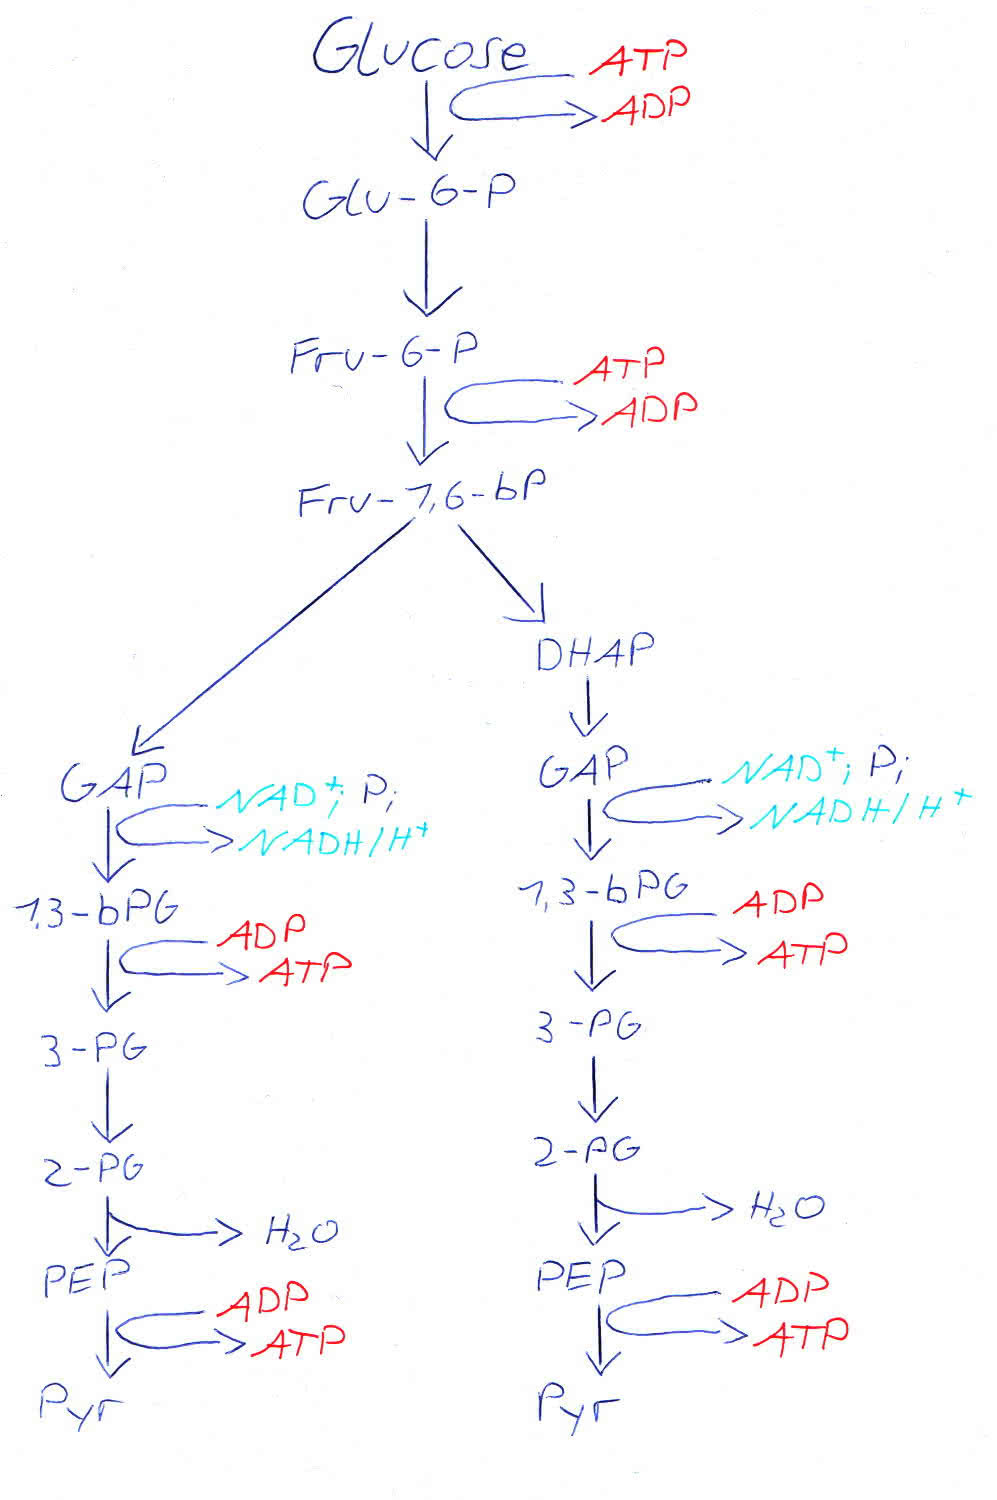 Glucose
ATP
ADP
Glu-6-P
Fru-6-P
ATP
ADP
Fru-1,6-bP
DHAP
GAP
NAD+; Pi
NADH/H+
GAP
NAD+; Pi
NADH/H+
1,3-bPG
ADP
ATP
1,3-bPG
ADP
ATP
3-PG
3-PG
2-PG
2-PG
H2O
H2O
PEP
PEP
ADP
ATP
ADP
ATP
Pyr
Pyr